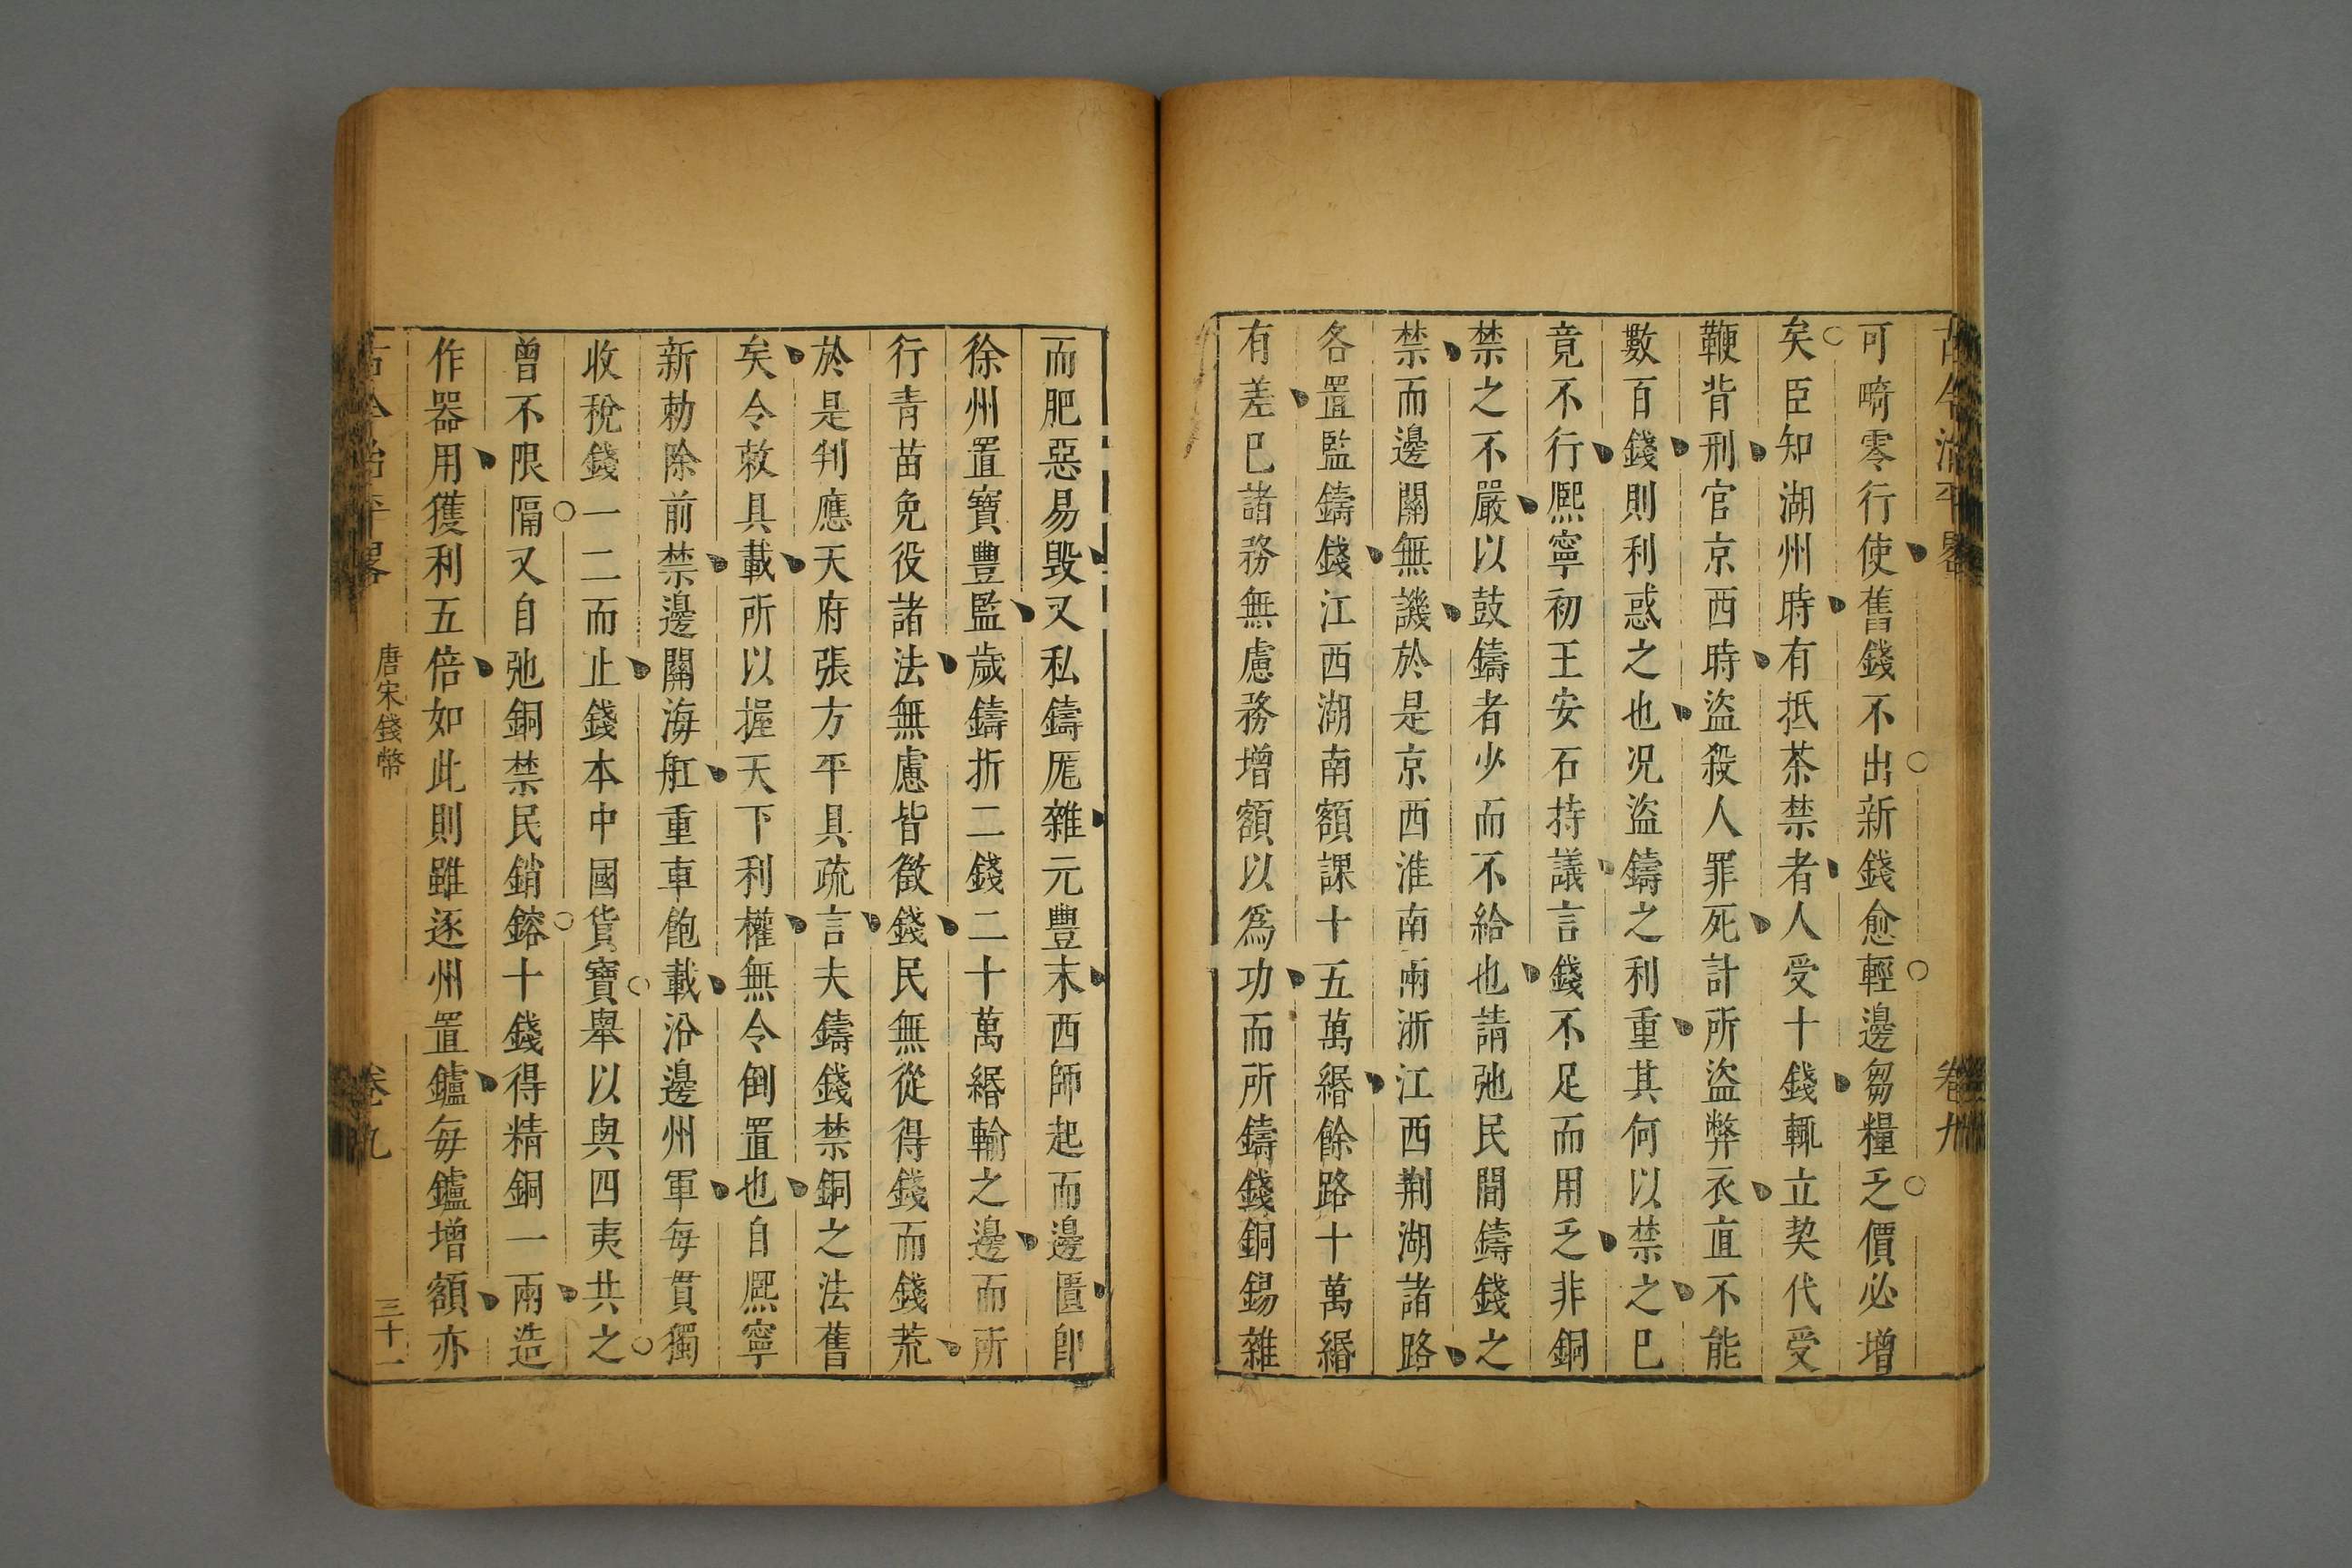 古今治平畧 卷九
可畸零行使舊錢不出新錢愈輕邊芻糧乏價必增
矣臣知湖州時有抵茶禁者人受十錢輒立契代受
鞭背刑官京西時盜殺人罪死計所盜弊衣直不能
數百錢則利惑之也况盜鑄之利重其何以禁之巳
竟不行熈寧初王安石持議言錢不足而用乏非銅
禁之不嚴以鼓鑄者少而不給也請弛民間鑄錢之
禁而邊關無譏於是京西淮南兩浙江西荆湖諸路
各置監鑄錢江西湖南額課十五萬緡餘路十萬緡
有差巳諸務無慮務增額以爲功而所鑄錢銅錫雜
而肥惡易毀又私鑄厖雜元豐末西師起而邊匱卽
徐州置寶豐監歲鑄折二錢二十萬緡輸之邊而所
行青苗免役諸法無慮皆徵錢民無從得錢而錢荒
於是判應天府張方平具疏言夫鑄錢禁銅之法舊
矣令敕具載所以握天下利權無令倒置也自熈寧
新勅除前禁邊關海舡重車飽載沿邊州軍每貫獨
收稅錢一二而止錢本中國貨寶舉以與四夷共之
曾不限隔又自弛銅禁民銷鎔十錢得精銅一兩造
作器用獲利五倍如此則雖逐州置鑪每鑪增額亦
古今治平畧 唐宋錢幣 卷九 三十一